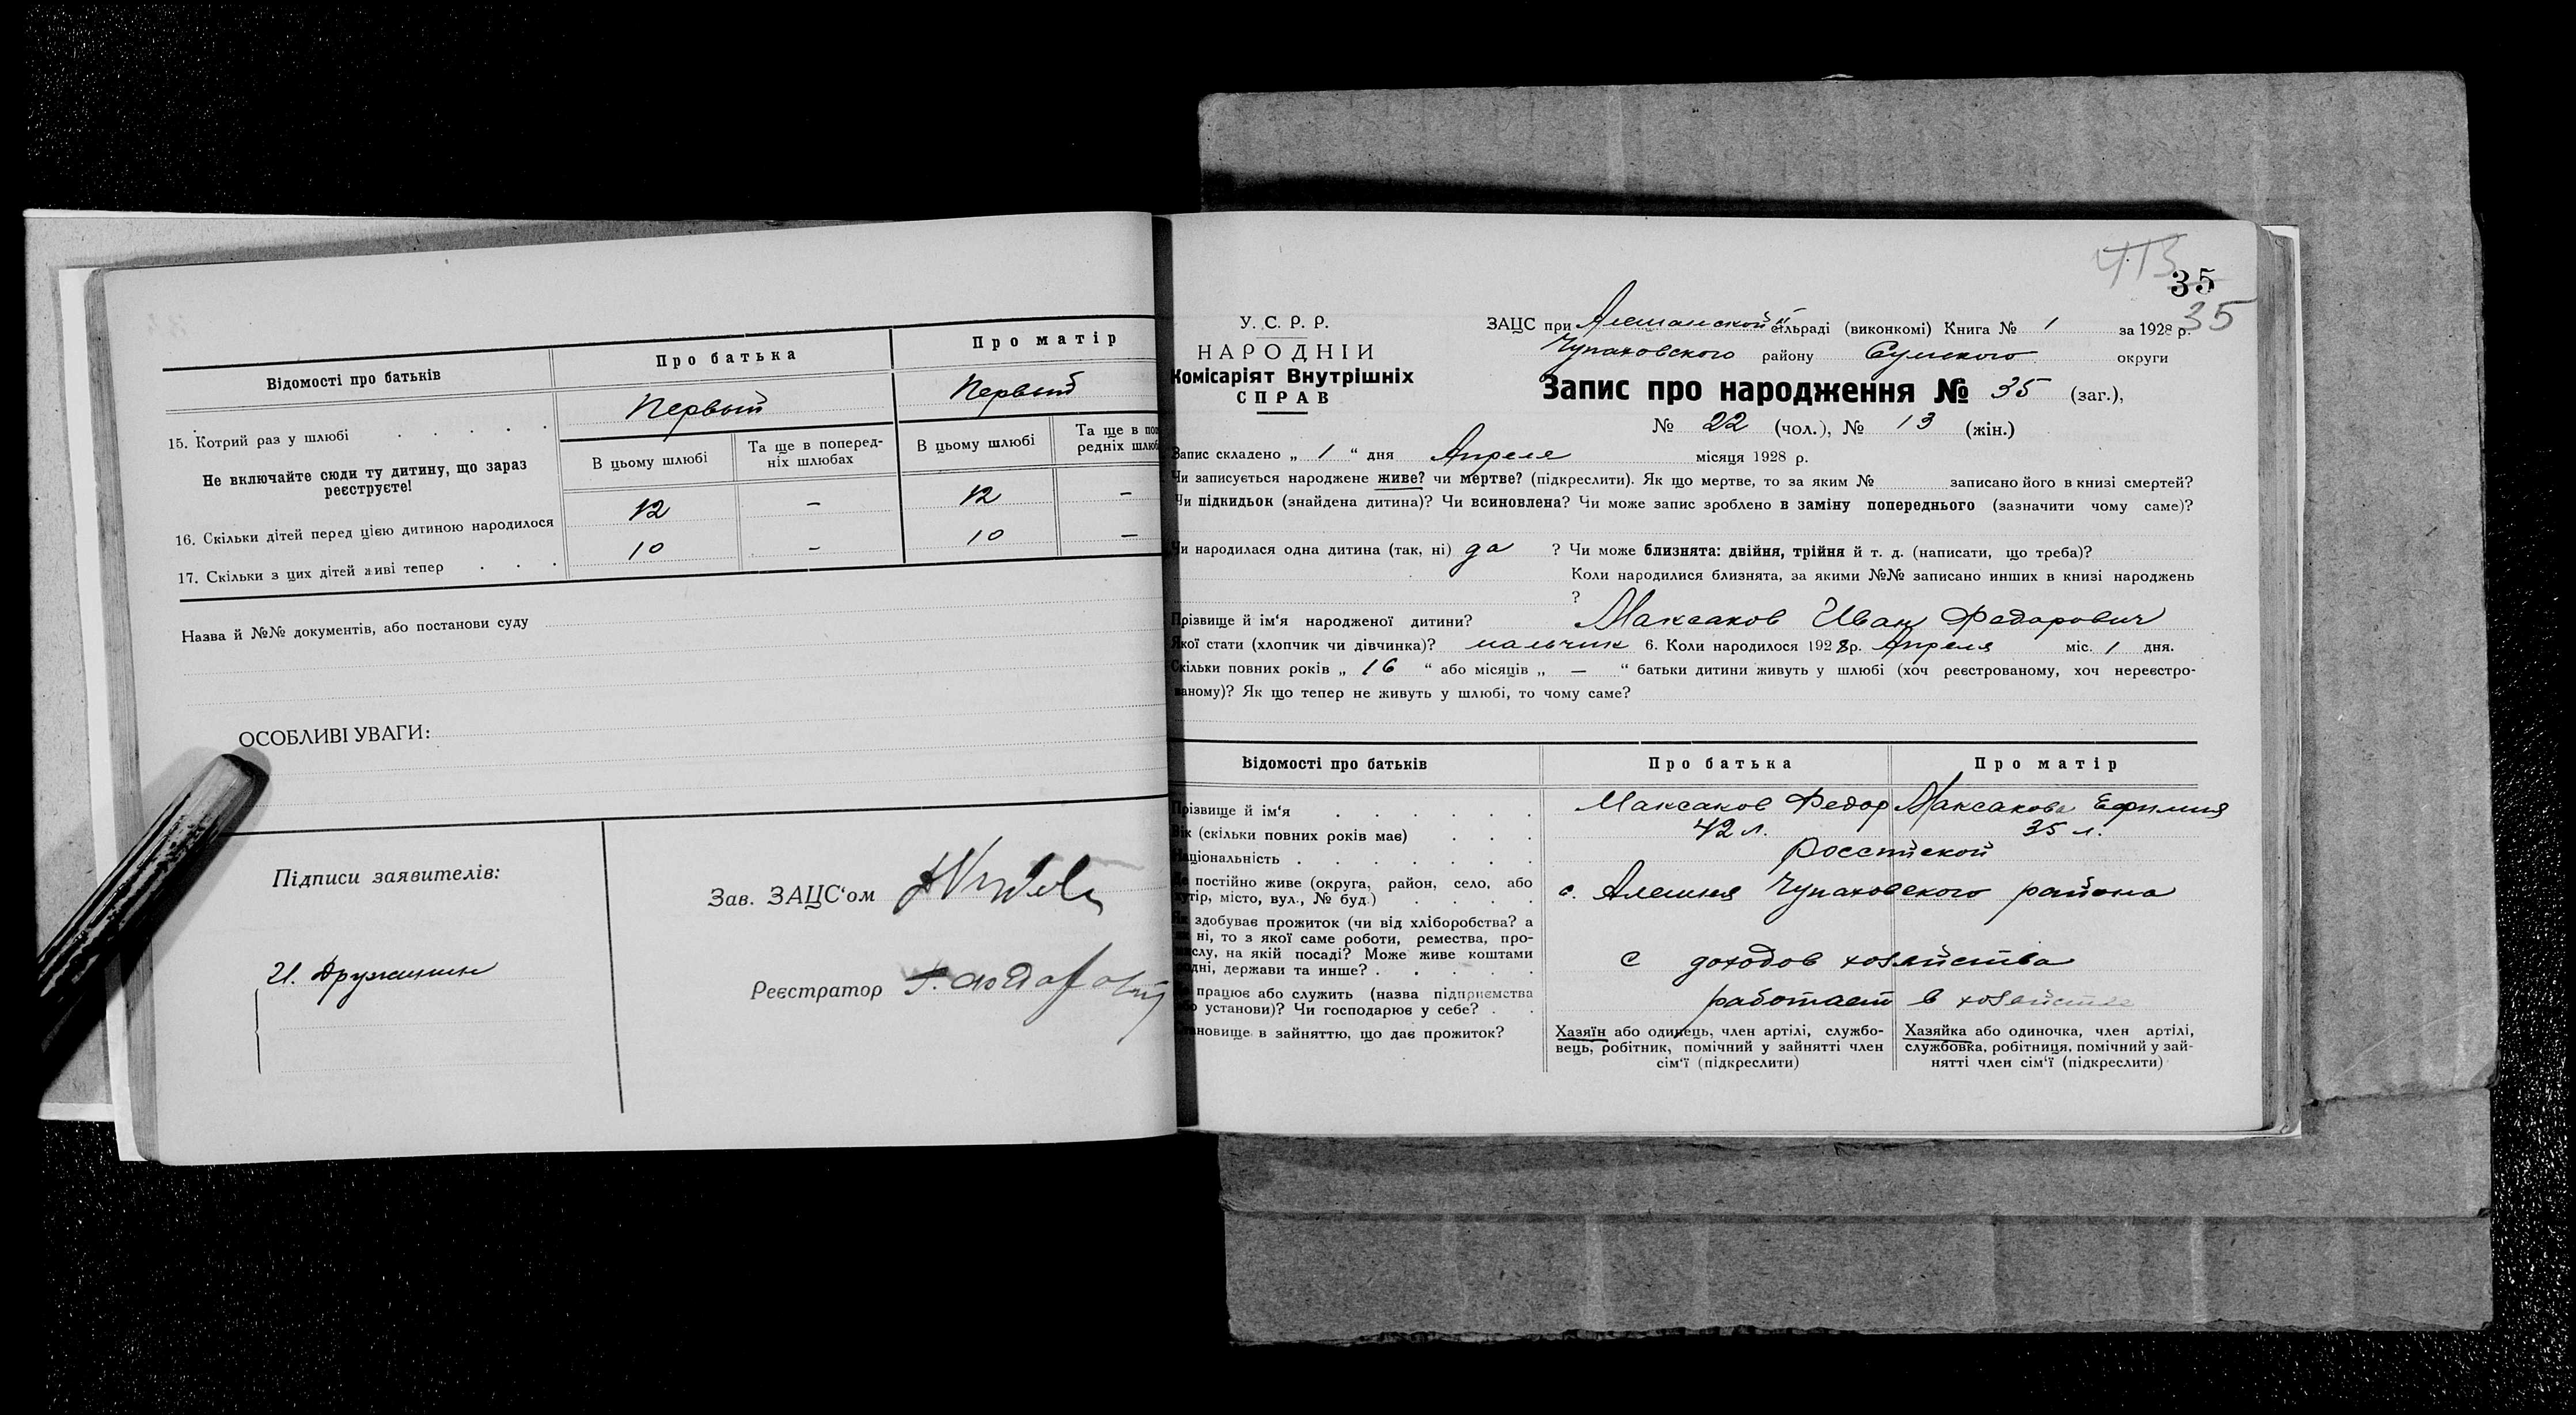 Відомості про батьків
Про батька
Про матір
15. Котрий раз у шлюбі
Первый
Первый
Не включайте сюди ту дитину, що зараз
реєструєте!
В цьому шлюбі
Та ще в поперед-
ніх шлюбах
В цьому шлюбі
Та ще в по
редніх шлюб
16. Скільки дітей перед цією дитиною народилося
12
–
12
–
17. Скільки з цих дітей живі тепер
10
–
10
–
Назва й №№ документів, або постанови суду
ОСОБЛИВІ УВАГИ:
Підписи заявителів:
И. Дружинин
Зав. ЗАЦС'ом
Реєстратор
35
35
У. С. Р. Р.
НАРОДНІЙ
Комісаріят Внутрішніх
СПРАВ
ЗАЦС при Алешанской сільраді (виконкомі) Книга № 1 за 1928 р.
Чупаховского району Сумского округи
Запис про народження № 35 (заг.),
№ 22 (чол.), № 13 (жін.)
Запис складено „ 1 “ дня Апреля місяця 1928 р.
Чи записується народжене живе? чи мертве? (підкреслити). Як що мертве, то за яким № записано його в книзі смертей?
Чи підкидьок (знайдена дитина)? Чи всиновлена? Чи може запис зроблено в заміну попереднього (зазначити чому саме)?
Чи народилася одна дитина (так, ні) да ? Чи може близнята: двійня, трійня й т. д. (написати, що треба)?
Коли народилися близнята, за якими №№ записано инших в книзі народжень
?
Прізвище й ім'я народженої дитини? Максаков Иван Федорович
Якої стати (хлопчик чи дівчинка)? мальчик 6. Коли народилося 1928 р. Апреля міс. 1 дня.
Скільки повних років „ 16 “ або місяців „ — “ батьки дитини живуть у шлюбі (хоч реєстрованому, хоч нереєстро-
ваному)? Як що тепер не живуть у шлюбі, то чому саме?
Відомості про батьків
Про батька
Про матір
Прізвище й ім'я
Максаков Федор
Максакова Ефимия
Вік (скільки повних років має)
42 л.
35 л.
Національність
Россійской
Де постійно живе (округа, район, село, або
хутір, місто, вул., № буд.)
с. Алешня Чупаховского района
Як здобуває прожиток (чи від хліборобства? а
ні, то з якої саме роботи, ремества, про-
мислу, на якій посаді? Може живе коштами
рідні, держави та инше?
С доходов хозяйства
працює або служить (назва підприємства
або установи)? Чи господарює у себе?
работает в хозяйстве
Становище в зайняттю, що дає прожиток?
Хазяїн або одинець, член артілі, службо-
вець, робітник, помічний у зайнятті член
сім'ї (підкреслити)
Хазяйка або одиночка, член артілі,
службовка, робітниця, помічний у зай-
нятті член сім'ї (підкреслити)